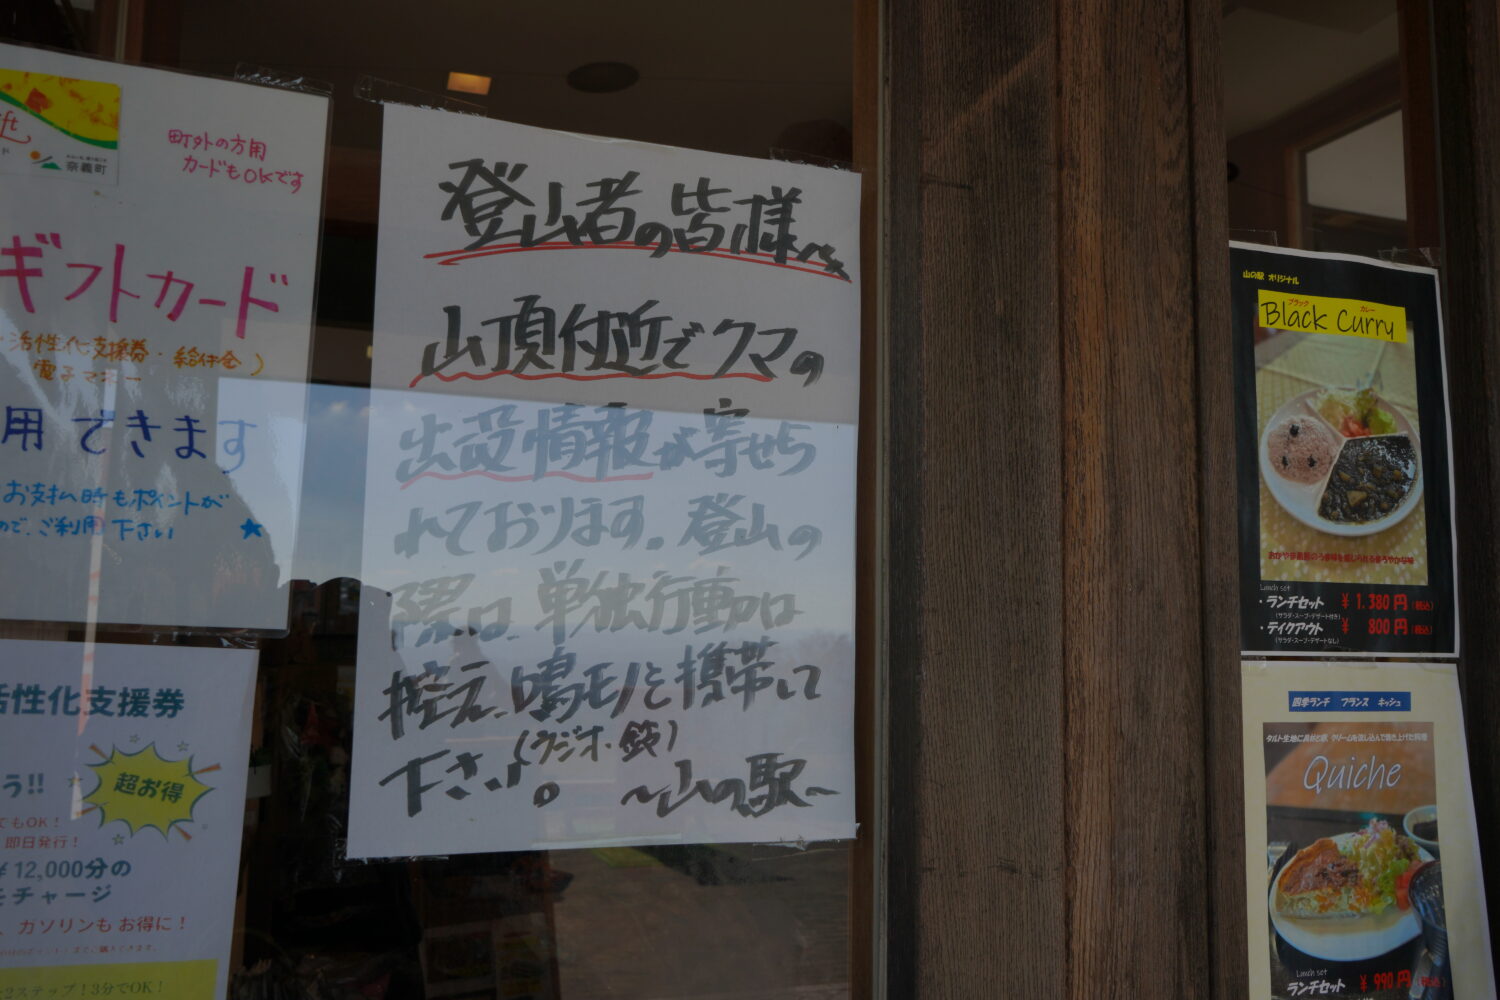 ft
奈義町
町外の方用
カードもOKです
ギフトカード
活性化支援券・給付金)
電子マネー
用できます
お支払時もポイントが
ので、ご利用下さい ★
活性化支援券
う!!
超お得
でもOK!
即日発行!
¥12,000分の
チャージ
ガソリンも お得に!
2ステップ!3分でOK!
登山者の皆様へ
山頂付近でクマの
出没情報が寄せら
れております。登山の
際は、単独行動は
控え、鳴モノを携帯して
(ラジオ・鈴)
下さい。 ~山の駅~
山の駅 オリジナル
ブラック カレー
Black Curry
Lunch set
・ランチセット ¥1.380円(税込)
(サラダ・スープ・デザート付き)
・テイクアウト ¥800円(税込)
(サラダ・スープ・デザートなし)
四季ランチ フランス キッシュ
Quiche
Lunch set
ランチセット ¥990円(税込)